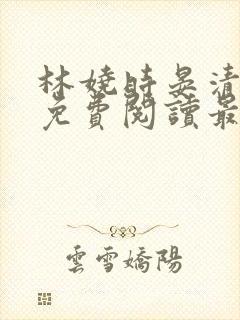 林嬈時晏清
免費閱讀最
雲雪嬌陽